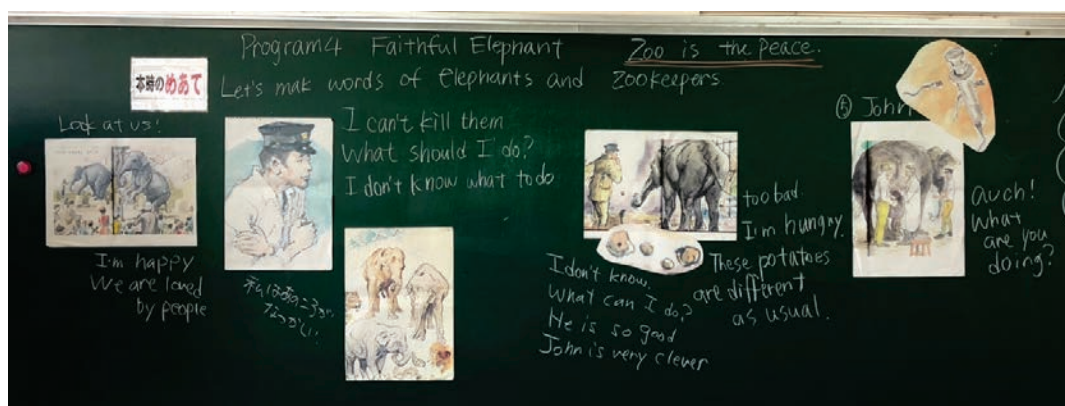 Program4 Faithful Elephant
Zoo is the Peace.
本時のめあて
Let's mak words of elephants and zookeepers.
Look at us!
I'm happy
We are loved
by people
I can't kill them
What should I do?
I don't know what to do
私はあのころが
なつかしい
I don't know.
What can I do?
He is so good
John is very clever
too bad.
I'm hungry.
These potatoes
are different
as usual.
John
auch!
What
are you
doing?